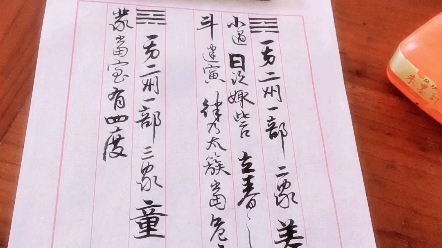 一方二州一部二家差
小過日次娵訾立春
斗建寅律乃太簇當危
一方二州一部三家童
蒙當室有四度